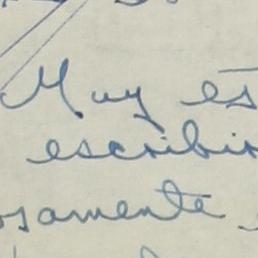 Muy es
escribir
samente